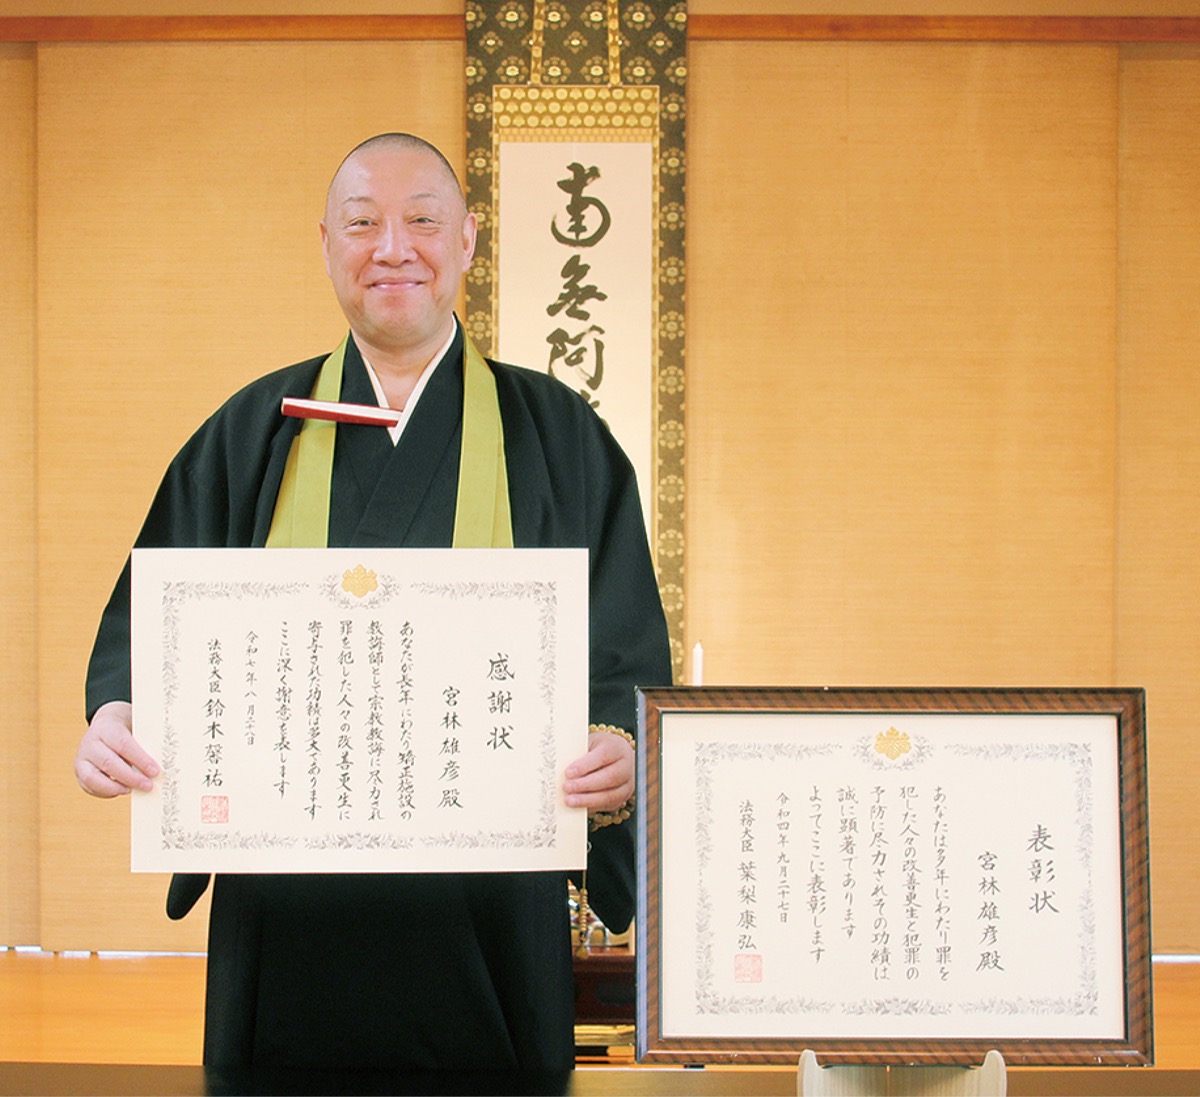 南無阿
感謝状
宮林雄彦殿
あなたが長年にわたり矯正施設の
教誨師として宗教教誨に尽力され
罪を犯した人々の改善更生に
寄与された功績は多大であります
ここに深く謝意を表します
令和七年八月二十八日
法務大臣 鈴木馨祐
表彰状
宮林雄彦殿
あなたは多年にわたり罪を
犯した人々の改善更生と犯罪の
予防に尽力されその功績は
誠に顕著であります
よってここに表彰します
令和四年九月二十七日
法務大臣 葉梨康弘